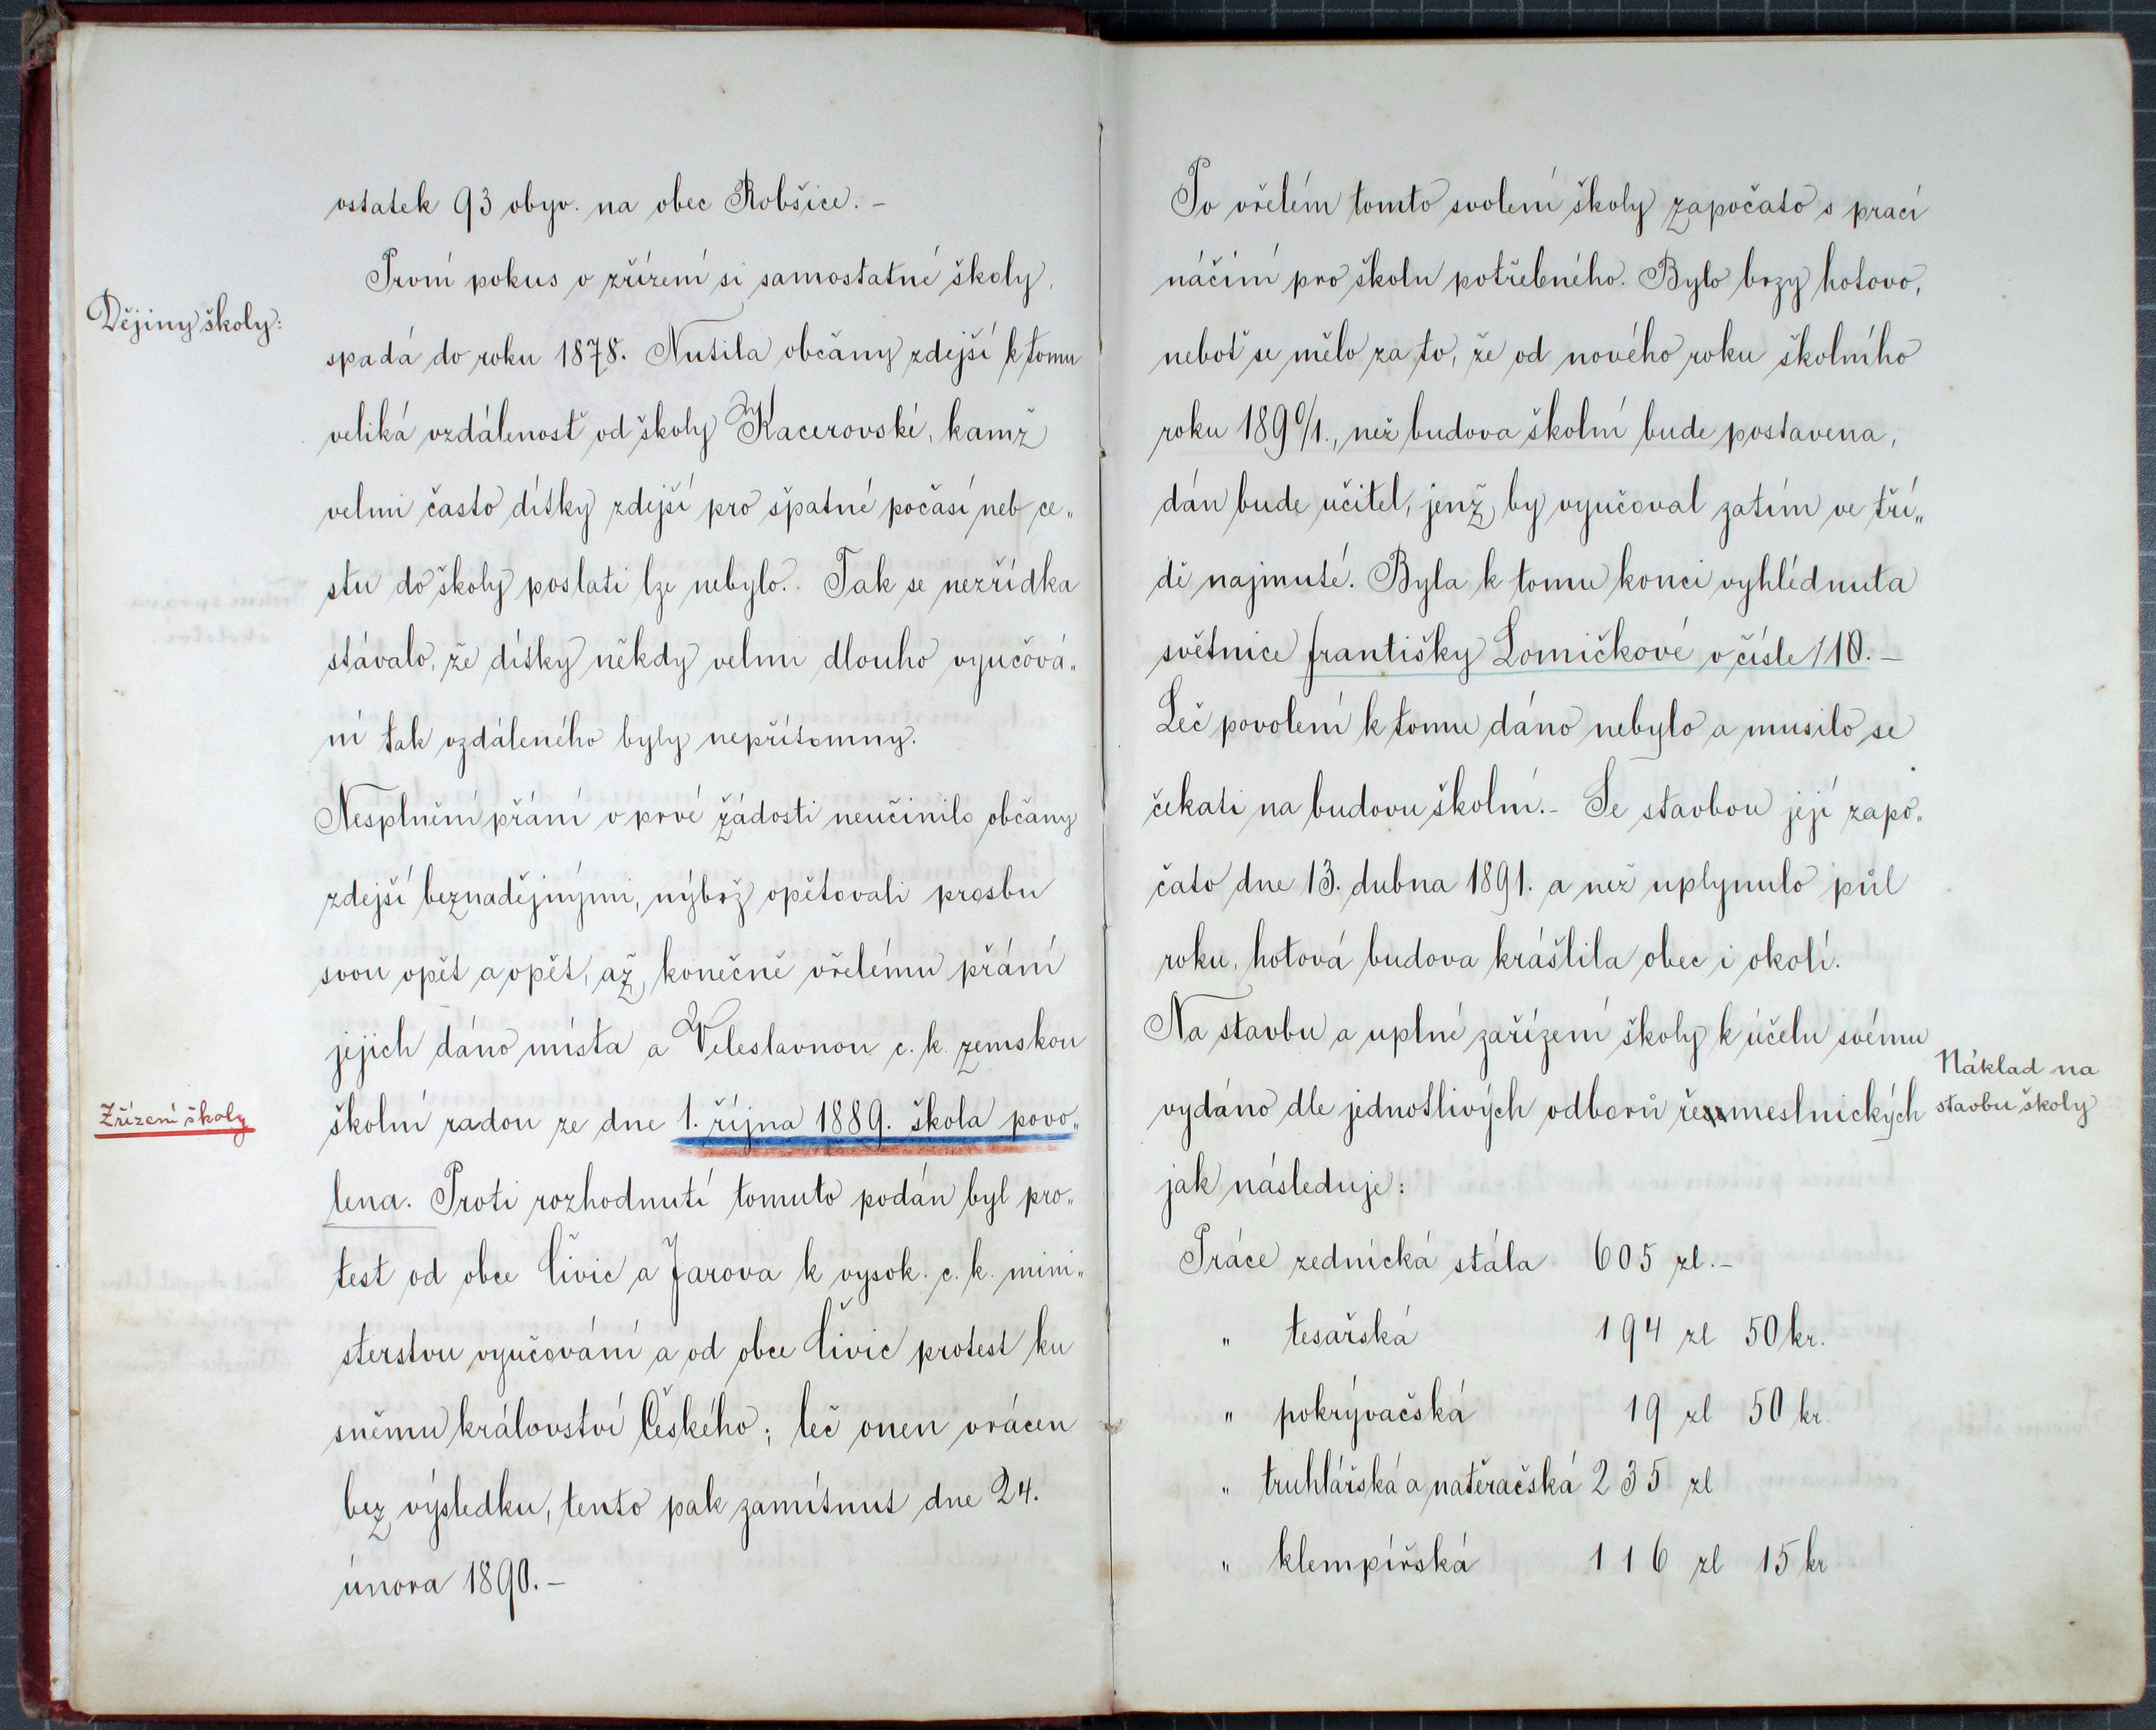 ostatek 93 obyv. na obec Robšice. –
Dějiny školy:
První pokus o zřízení si samostatné školy,
spadá do roku 1878. Nutila občany zdejší k tomu
veliká vzdálenosť od školy Kacerovské, kamž
velmi často dítky zdejší pro špatné počasí neb ce„
stu do školy poslati lze nebylo. Tak se nezřídka
stávalo, že dítky někdy velmi dlouho vyučová„
ní tak vzdáleného byly nepřítomny.
Nesplnění přání v prvé žádosti neučinilo občany
zdejší beznadějnými, nýbrž opětovali prosbu
svou opět a opět, až konečně vřelému přání
jejich dáno místa a Veleslavnou c. k. zemskou
Zřízení školy
školní radou ze dne 1. října 1889. škola povo„
lena. Proti rozhodnutí tomuto podán byl pro„
test od obce Čivic a Jarova k vysok. c. k. mini„
sterstvu vyučování a od obce Čivic protest ku
sněmu království Českého; leč onen vrácen
bez výsledku, tento pak zamítnut dne 24.
února 1890. –
Po vřelém tomto svolení školy započato s prací
náčiní pro školu potřebného. Bylo brzy hotovo,
neboť se mělo za to, že od nového roku školního
roku 1890/1., než budova školní bude postavena,
dán bude učitel, jenž by vyučoval zatím ve tří„
dě najmuté. Byla k tomu konci vyhlédnuta
světnice Františky Lomičkové v čísle 110. –
Leč povolení k tomu dáno nebylo a musilo se
čekati na budovu školní. – Se stavbou její zapo„
čato dne 13. dubna 1891. a než uplynulo půl
roku, hotová budova krášlila obec i okolí.
Na stavbu a uplné zařízení školy k účelu svému
Náklad na
stavbu školy
vydáno dle jednotlivých odborů řemeslnických
jak následuje:
Práce zednická stála 605 zl. –
„ tesařská 194 zl 50 kr.
„ pokrývačská 19 zl 50 kr.
„ truhlářská a natěračská 235 zl
„ klempířská 116 zl 15 kr